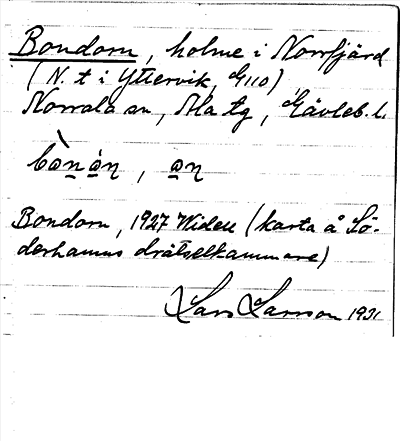 Bondorn, holme i Norrfjärd
(N. t i Yttervik, G110)
Norrala sn, Ala tg, Gävleb. l.
Bondorn, 1927 Widell (karta å Sö-
derhamns drätselkammare)
Lars Larsson 1931